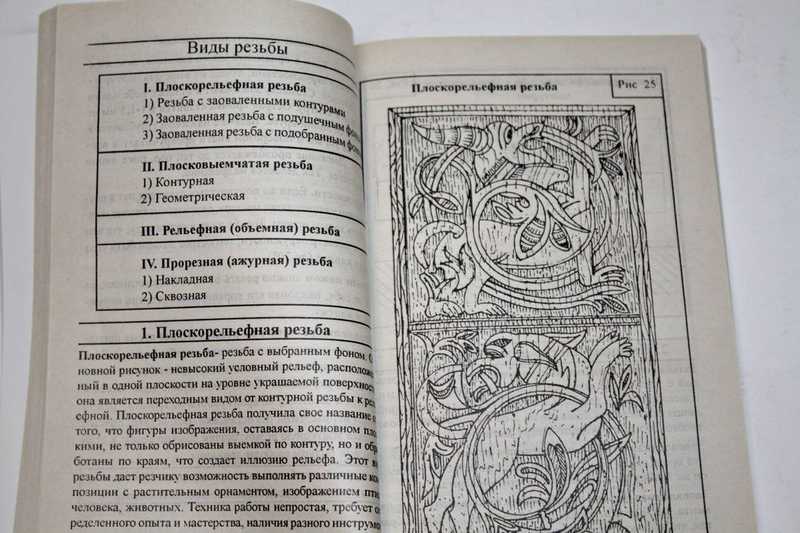 Виды резьбы
I. Плоскорельефная резьба
1) Резьба с заоваленными контурами
2) Заоваленная резьба с подушечным
3) Заоваленная резьба с подобранным
II. Плосковыемчатая резьба
1) Контурная
2) Геометрическая
III. Рельефная (объемная) резьба
IV. Прорезная (ажурная) резьба
1) Накладная
2) Сквозная
1. Плоскорельефная резьба
Плоскорельефная резьба- резьба с выбранным фоном.
новной рисунок - невысокий условный рельеф,
ный в одной плоскости на уровне украшаемой
она является переходным видом от контурной резьбы к
ефной. Плоскорельефная резьба получила свое название
того, что фигуры изображения, оставаясь в основном
кими, не только обрисованы выемкой по контуру, но и
ботаны по краям, что создает иллюзию рельефа. Этот
резьбы дает резчику возможность выполнять различные
позиции с растительным орнаментом, изображением
человека, животных. Техника работы непростая, требует
ределенного опыта и мастерства, наличия разного
Плоскорельефная резьба
Рис 25